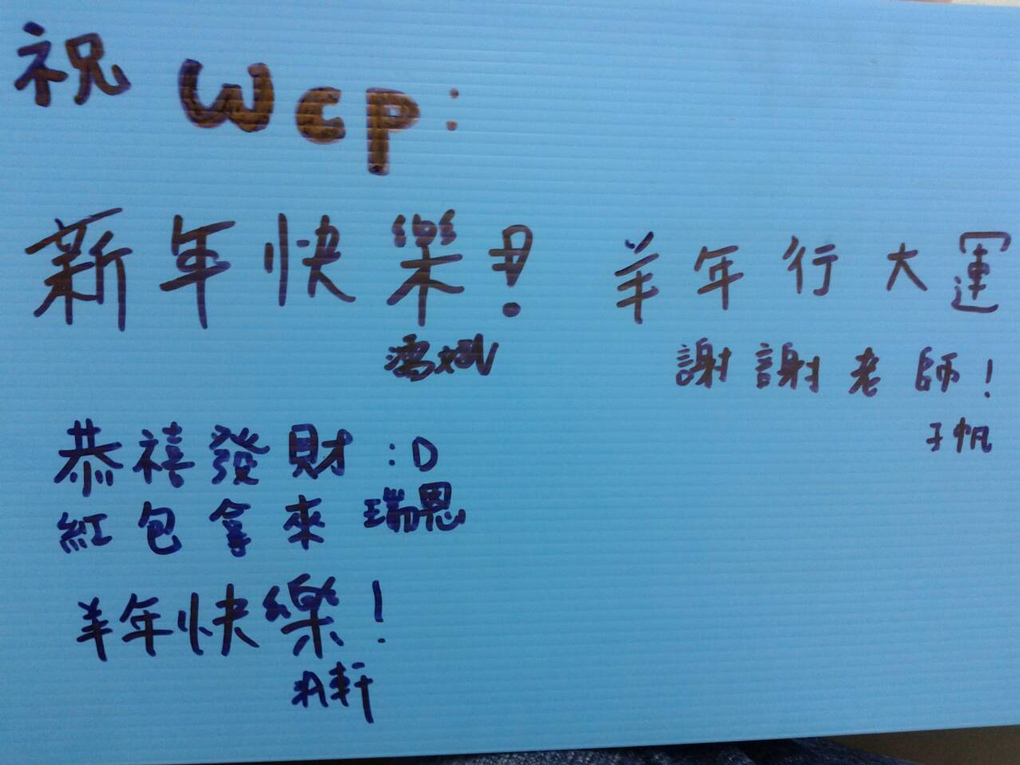 祝 wcp:
新年快樂!
恭禧發財 :D
紅包拿來 瑞恩
羊年快樂!
羊年行大運
謝謝老師!
子帆